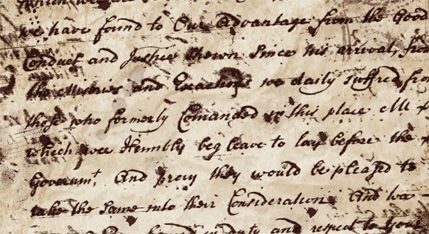 we have found to Our Advantage from the Good
Conduct and Justice shewn Since his arrival, from
the and Exactions we daily suffred from
those who formerly Comanded in this place All
which wee Humbly beg leave to lay before the
Governmt. And pray they would be pleased to
take the Same into their Consideration And
in duty and respect to your